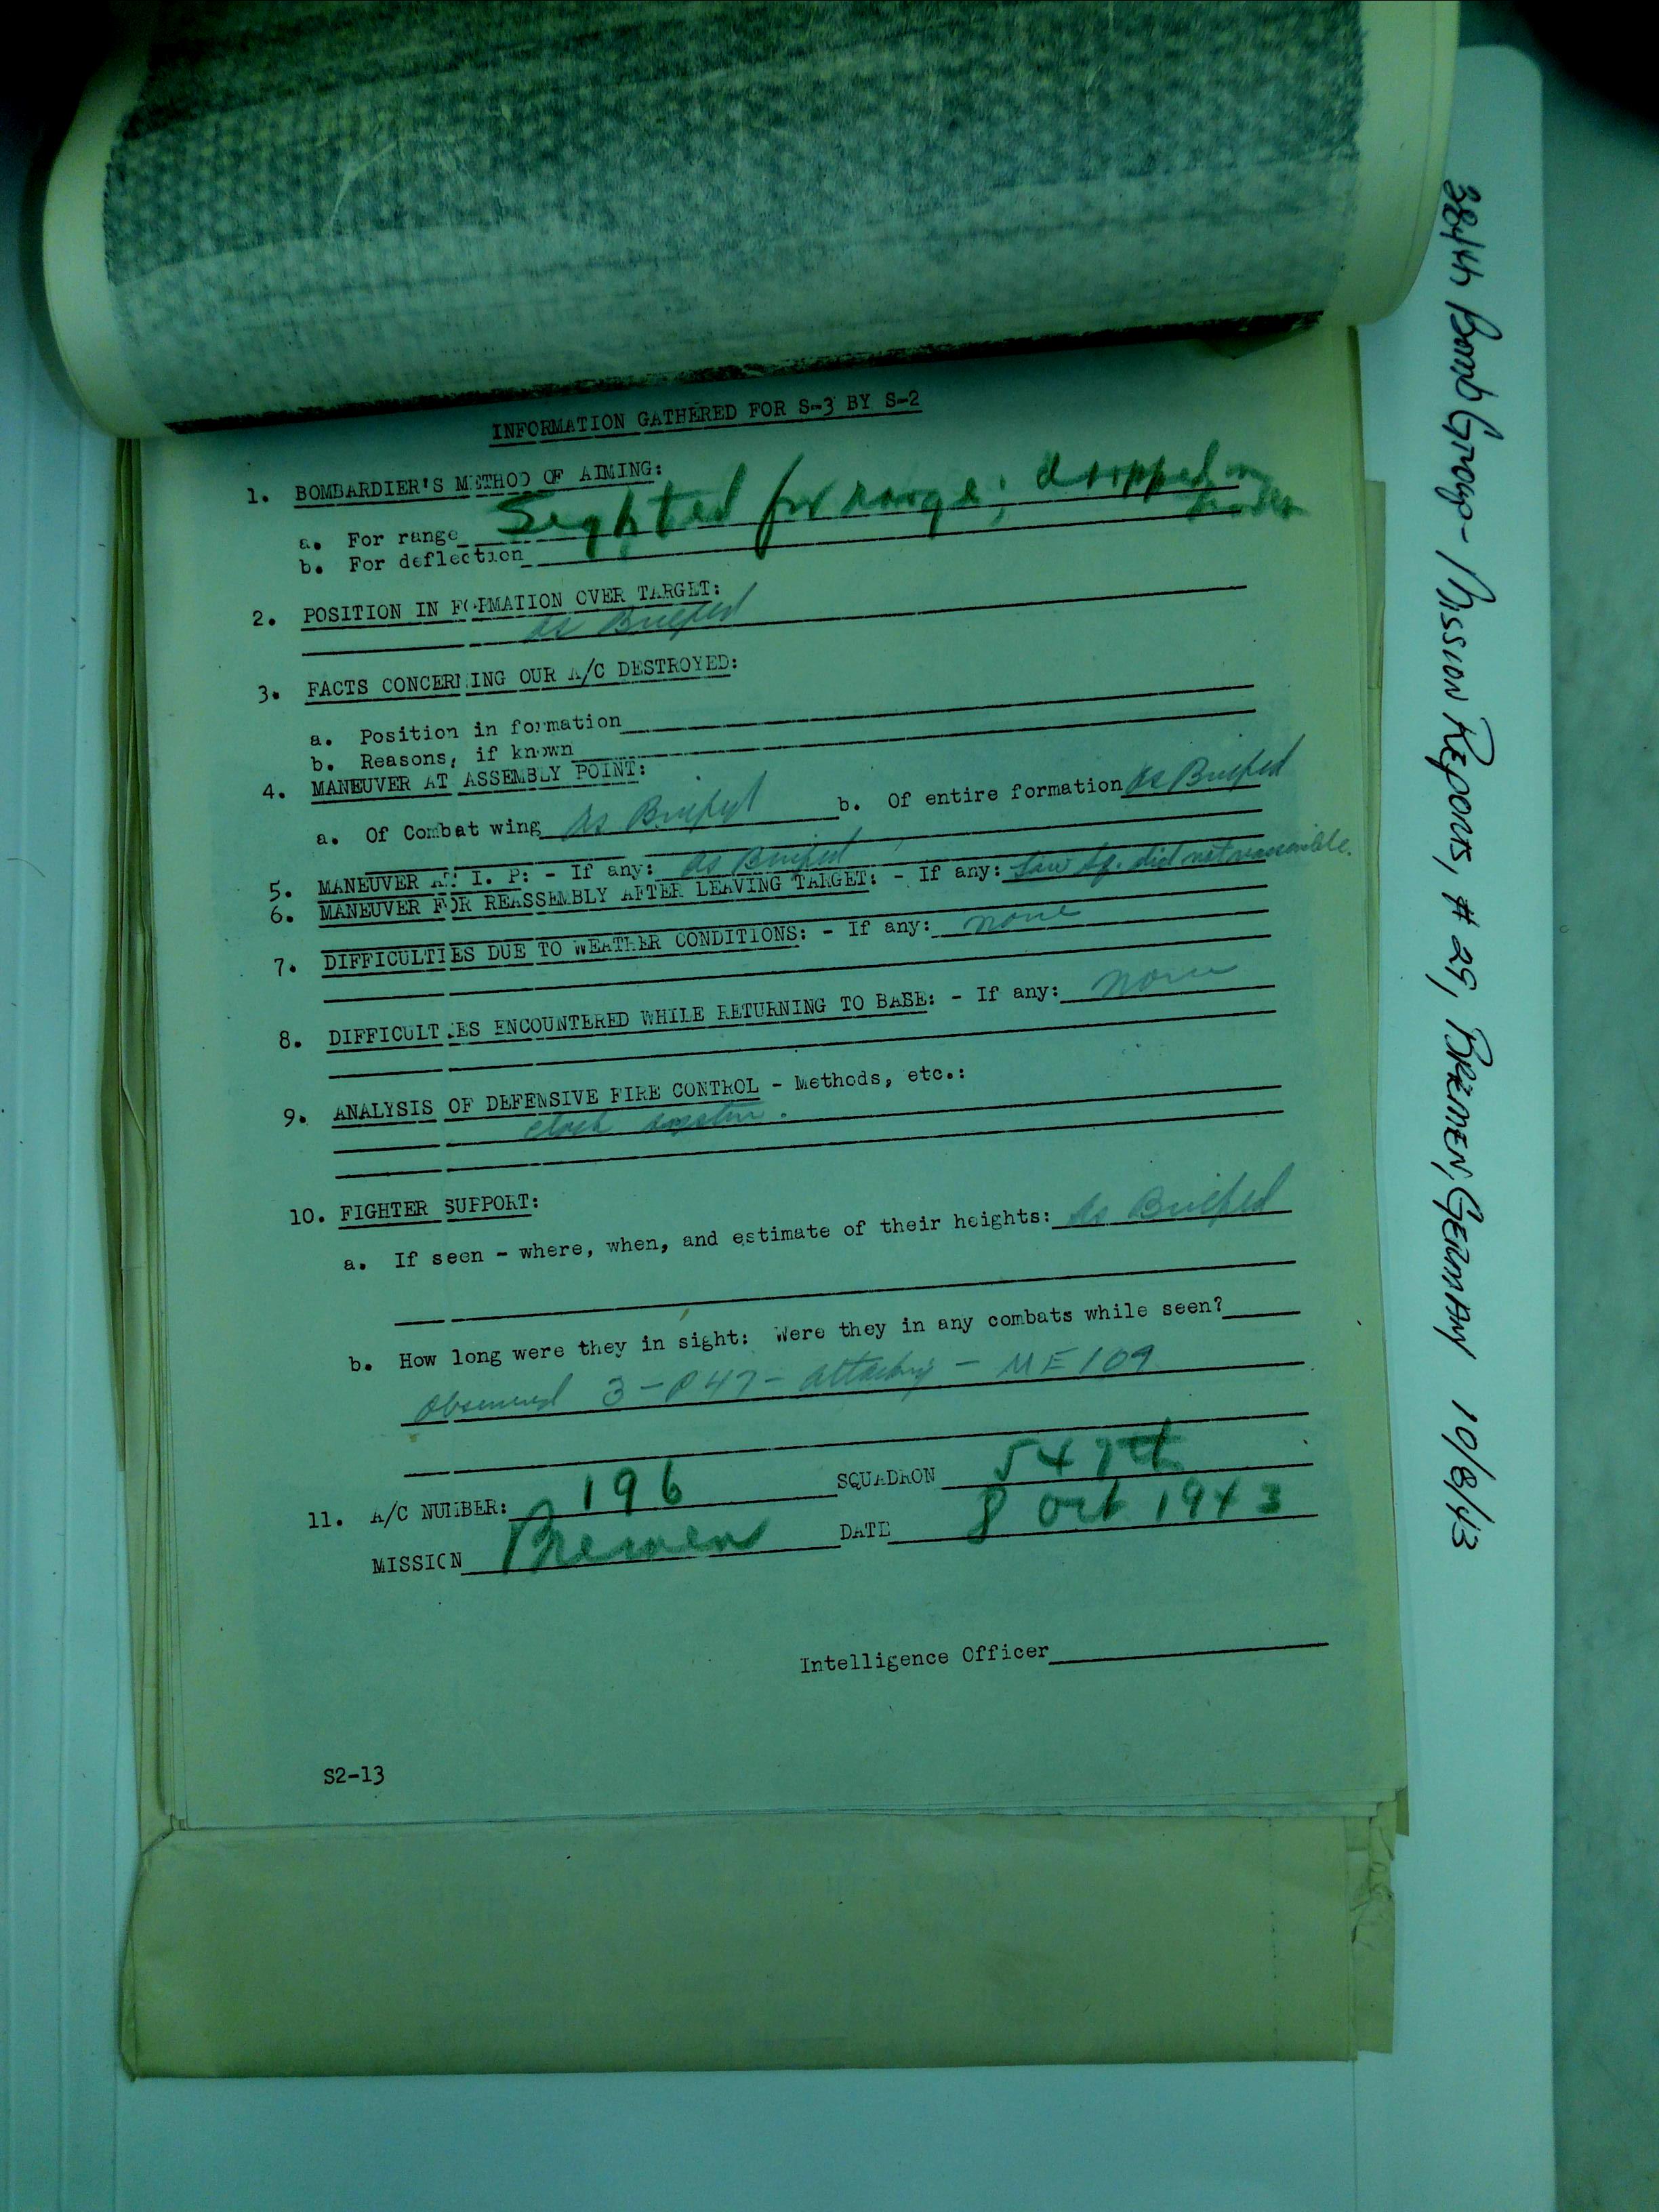 INFORMATION GATHERED FOR S-3 BY S-2
1. BOMBARDIER'S METHOD OF AIMING:
a. For range Sighted for range; dropped on
leader
b. For deflection
2. POSITION IN FORMATION OVER TARGET:
As Briefed
3. FACTS CONCERNING OUR A/C DESTROYED:
a. Position in formation
b. Reasons, if known
4. MANEUVER AT ASSEMBLY POINT:
a. Of Combat wing As Briefed b. Of entire formation As Briefed
5. MANEUVER AT I. P: - If any: As Briefed
6. MANEUVER FOR REASSEMBLY AFTER LEAVING TARGET: - If any: Low Sq. did not reassemble.
7. DIFFICULTIES DUE TO WEATHER CONDITIONS: - If any: none
8. DIFFICULTIES ENCOUNTERED WHILE RETURNING TO BASE: - If any: none
9. ANALYSIS OF DEFENSIVE FIRE CONTROL - Methods, etc.:
clock system.
10. FIGHTER SUPPORT:
a. If seen - where, when, and estimate of their heights: As Briefed
b. How long were they in sight: Were they in any combats while seen?
Observed 3 - P47 - attacking - ME109
11. A/C NUMBER: 196 SQUADRON 547th
MISSION Bremen DATE 8 Oct 1943
Intelligence Officer
S2-13
384th Bomb Group - Mission Reports, # 25, BREMEN, GERMANY 10/8/43